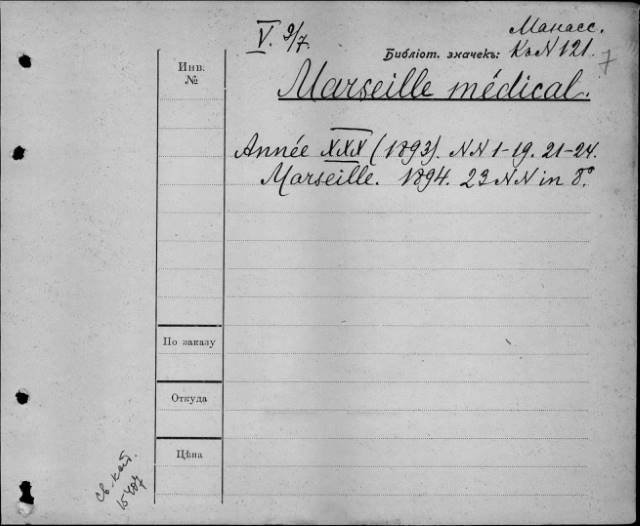 V. 9/7.
Манасс.
Библіот. значекъ: К. N 121.
7
Инв.
№
Marseille médical.
Année XXX (1893). NN 1-19. 21-24.
Marseille. 1894. 23 NN in 8°.
По заказу
Откуда
Цѣна
св. кат.
15407